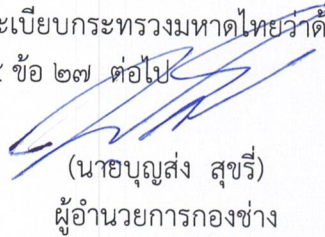 ะเบียบกระทรวงมหาดไทยว่าด้
ข้อ ๒๗ ต่อไป
(นายบุญส่ง สุขรี่)
ผู้อำนวยการกองช่าง